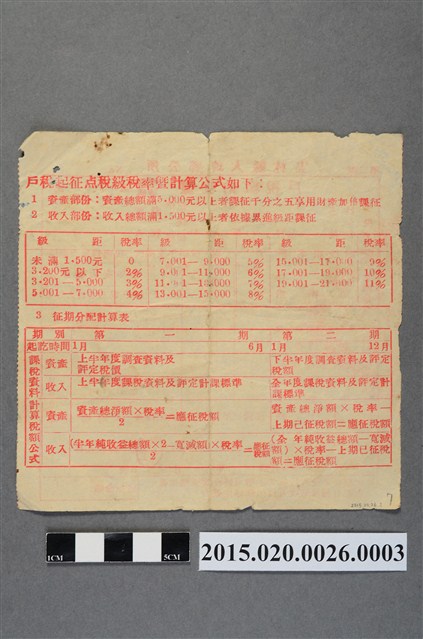 戶稅起征点稅級稅率暨計算公式如下：
1 資產部份：資產總額滿5,000元以上者課征千分之五享用財產加倍課征
2 收入部份：收入總額滿1,500元以上者依據累進級距課征
級 距 稅率 級 距 稅率 級 距 稅率
未滿1,500元 0 7,001—9,000 5% 15,001—17,000 9%
3,200元以下 2% 9,001—11,000 6% 17,001—19,000 10%
3,201—5,000 3% 11,001—13,000 7% 19,001—21,000 11%
5,001—7,000 4% 13,001—15,000 8%
3 征期分配計算表
期別 第一 第二期
起訖時間 1月 6月 1月 12月
課稅資料 資產 上半年度調查資料及評定稅價 下半年度調查資料及評定稅額
收入 上半年度課稅資料及評定計課標準 全年度課稅資料及評定計課標準
計算稅額公式 資產 資產總淨額×稅率/2=應征稅額 資產總淨額×稅率—上期已征稅額=應征稅額
收入 (半年純收益總額×2—寬減額)×稅率/2=應征稅額 (全年純收益總額—寬減額)×稅率—上期已征稅額=應征稅額
7
1CM 5CM
2015.020.0026.0003